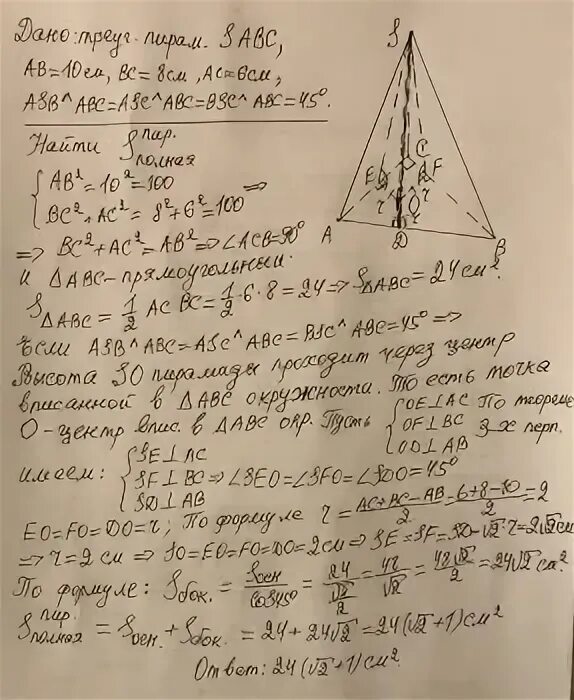 Дано: треуг. пирам. SABC,
AB=10 см, BC=8см, AC=6см,
ASB^ABC=ASC^ABC=BSC^ABC=45°.
Найти S пир. полная
{AB²=10²=100
{BC²+AC²=8²+6²=100 =>
=> BC²+AC²=AB² => ∠ACB=90°
и ΔABC-прямоугольный.
S ΔABC = 1/2 AC BC = 1/2·6·8=24 => S ΔABC = 24 см².
Если ASB^ABC=ASC^ABC=BSC^ABC=45° =>
Высота SO пирамады проходит через центр
вписанной в ΔABC окружности. То есть точка
O-центр впис. в ΔABC окр. Пусть {OE⊥AC По теореме
{OF⊥BC 3-х перп.
{OD⊥AB
имеем: {SE⊥AC
{SF⊥BC => ∠SEO=∠SFO=∠SDO=45°
{SD⊥AB
EO=FO=DO=r; По формуле r = (AC+BC-AB)/2 = (6+8-10)/2 = 2
=> r=2 см => SO=EO=FO=DO=2см => SE=SF=SD=√2 r=2√2см
По формуле: S бок. = S осн/cos45° = 24/(√2/2) = 48/√2 = 48√2/2 = 24√2 см².
S пир. полная = S осн. + S бок. = 24+24√2=24(√2+1)см²
Ответ: 24(√2+1)см².
S
E
C
F
r
r
O
r
A
D
B